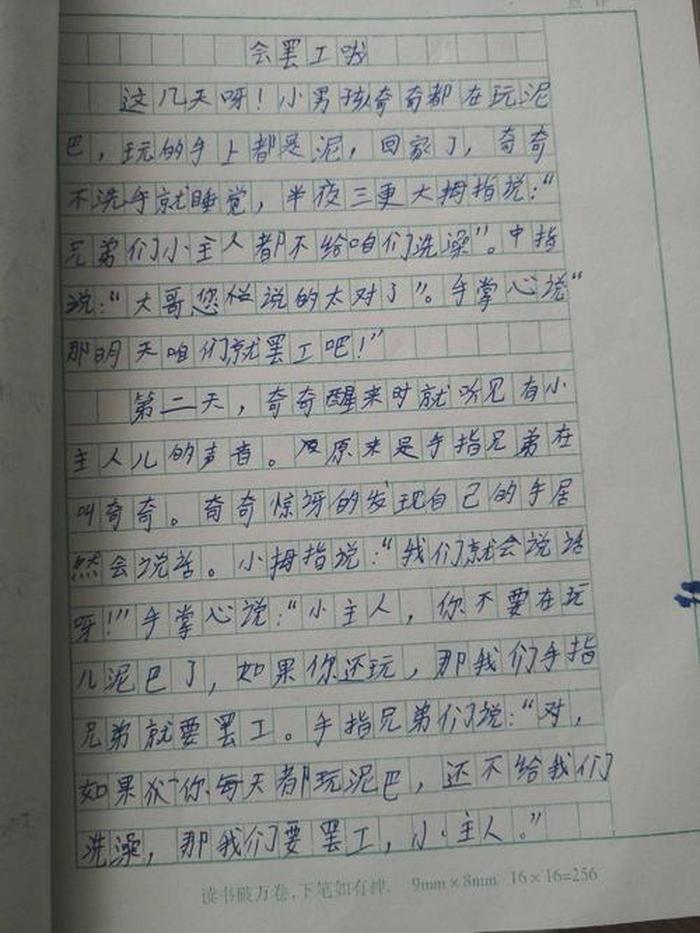 会罢工啦
这几天呀！小男孩奇奇都在玩泥
巴，玩的手上都是泥，回家了，奇奇
不洗手就睡觉，半夜三更大拇指说：“
兄弟们小主人都不给咱们洗澡”。中指
说：“大哥您说的太对了”。手掌心说“
那明天咱们就罢工吧！”
第二天，奇奇醒来时就听见有小
主人儿的声音。原来是手指兄弟在
叫奇奇。奇奇惊讶的发现自己的手居
然会说话。小拇指说：“我们就会说话
呀！”手掌心说：“小主人，你不要在玩
儿泥巴了，如果你还玩，那我们手指
兄弟就要罢工。手指兄弟们说：“对，
如果你每天都玩泥巴，还不给我们
洗澡，那我们要罢工，小主人。”
读书破万卷，下笔如有神. 9mm×8mm 16×16=256